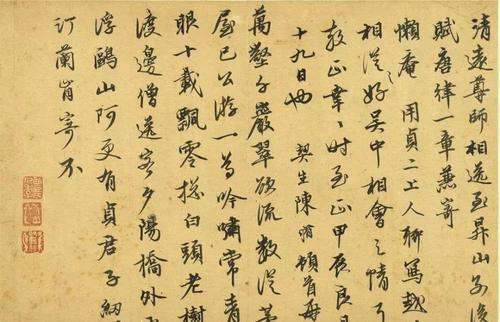 清遠尊師相邀至昇山予後
賦唐律一章兼寄
懶庵用貞二上人聊寫越
相從之好吳中相會之情
教正幸幸時至正甲辰良月
十九日也 契生陳頓首再
萬壑千巖翠欲流數從茅
屋已公游一為吟嘯常青
眼十載飄零總白頭老樹
渡邊僧送客夕陽橋外
浮鷗山阿更有貞君子紉
汀蘭肯寄不